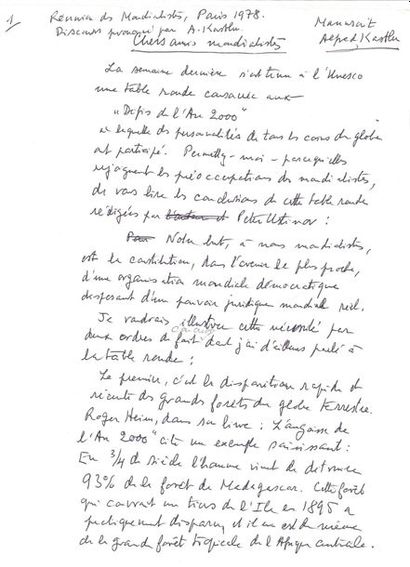 1
Reunion des Mondialistes, Paris 1978.
Discours prononcé par A. Kastler.
Manuscrit
Alfred Kastler
Chers amis mondialistes
La semaine dernière s'est tenu à l'Unesco
une table ronde consacrée aux
"Défis de l'An 2000"
à laquelle des personalités de tous les coins du globe
ont participé. Permettez-moi - parcequ'elles
rejoignent les préoccupations des mondialistes,
de vous lire les conclusions de cette table ronde
rédigées par Peter Ustinov :
Notre but, à nous mondialistes,
est la constitution, dans l'avenir le plus proche,
d'une organisation mondiale démocratique
disposant d'un pouvoir juridique mondial réel.
Je voudrais illustrer cette nécessité par
deux ordres de faits dont j'ai d'ailleurs parlé à
la table ronde :
Le premier, c'est la disparition rapide et
récente des grandes forêts du globe terrestre.
Roger Heim, dans son livre : L'angoisse de
l'An 2000" cite un exemple saisissant :
En 3/4 de siècle l'homme vient de détruire
93% de la forêt de Madagascar. Cette forêt
qui couvrait un tiers de l'Ile en 1895 a
pratiquement disparu, et il en est de même
de la grande forêt tropicale de l'Afrique centrale.